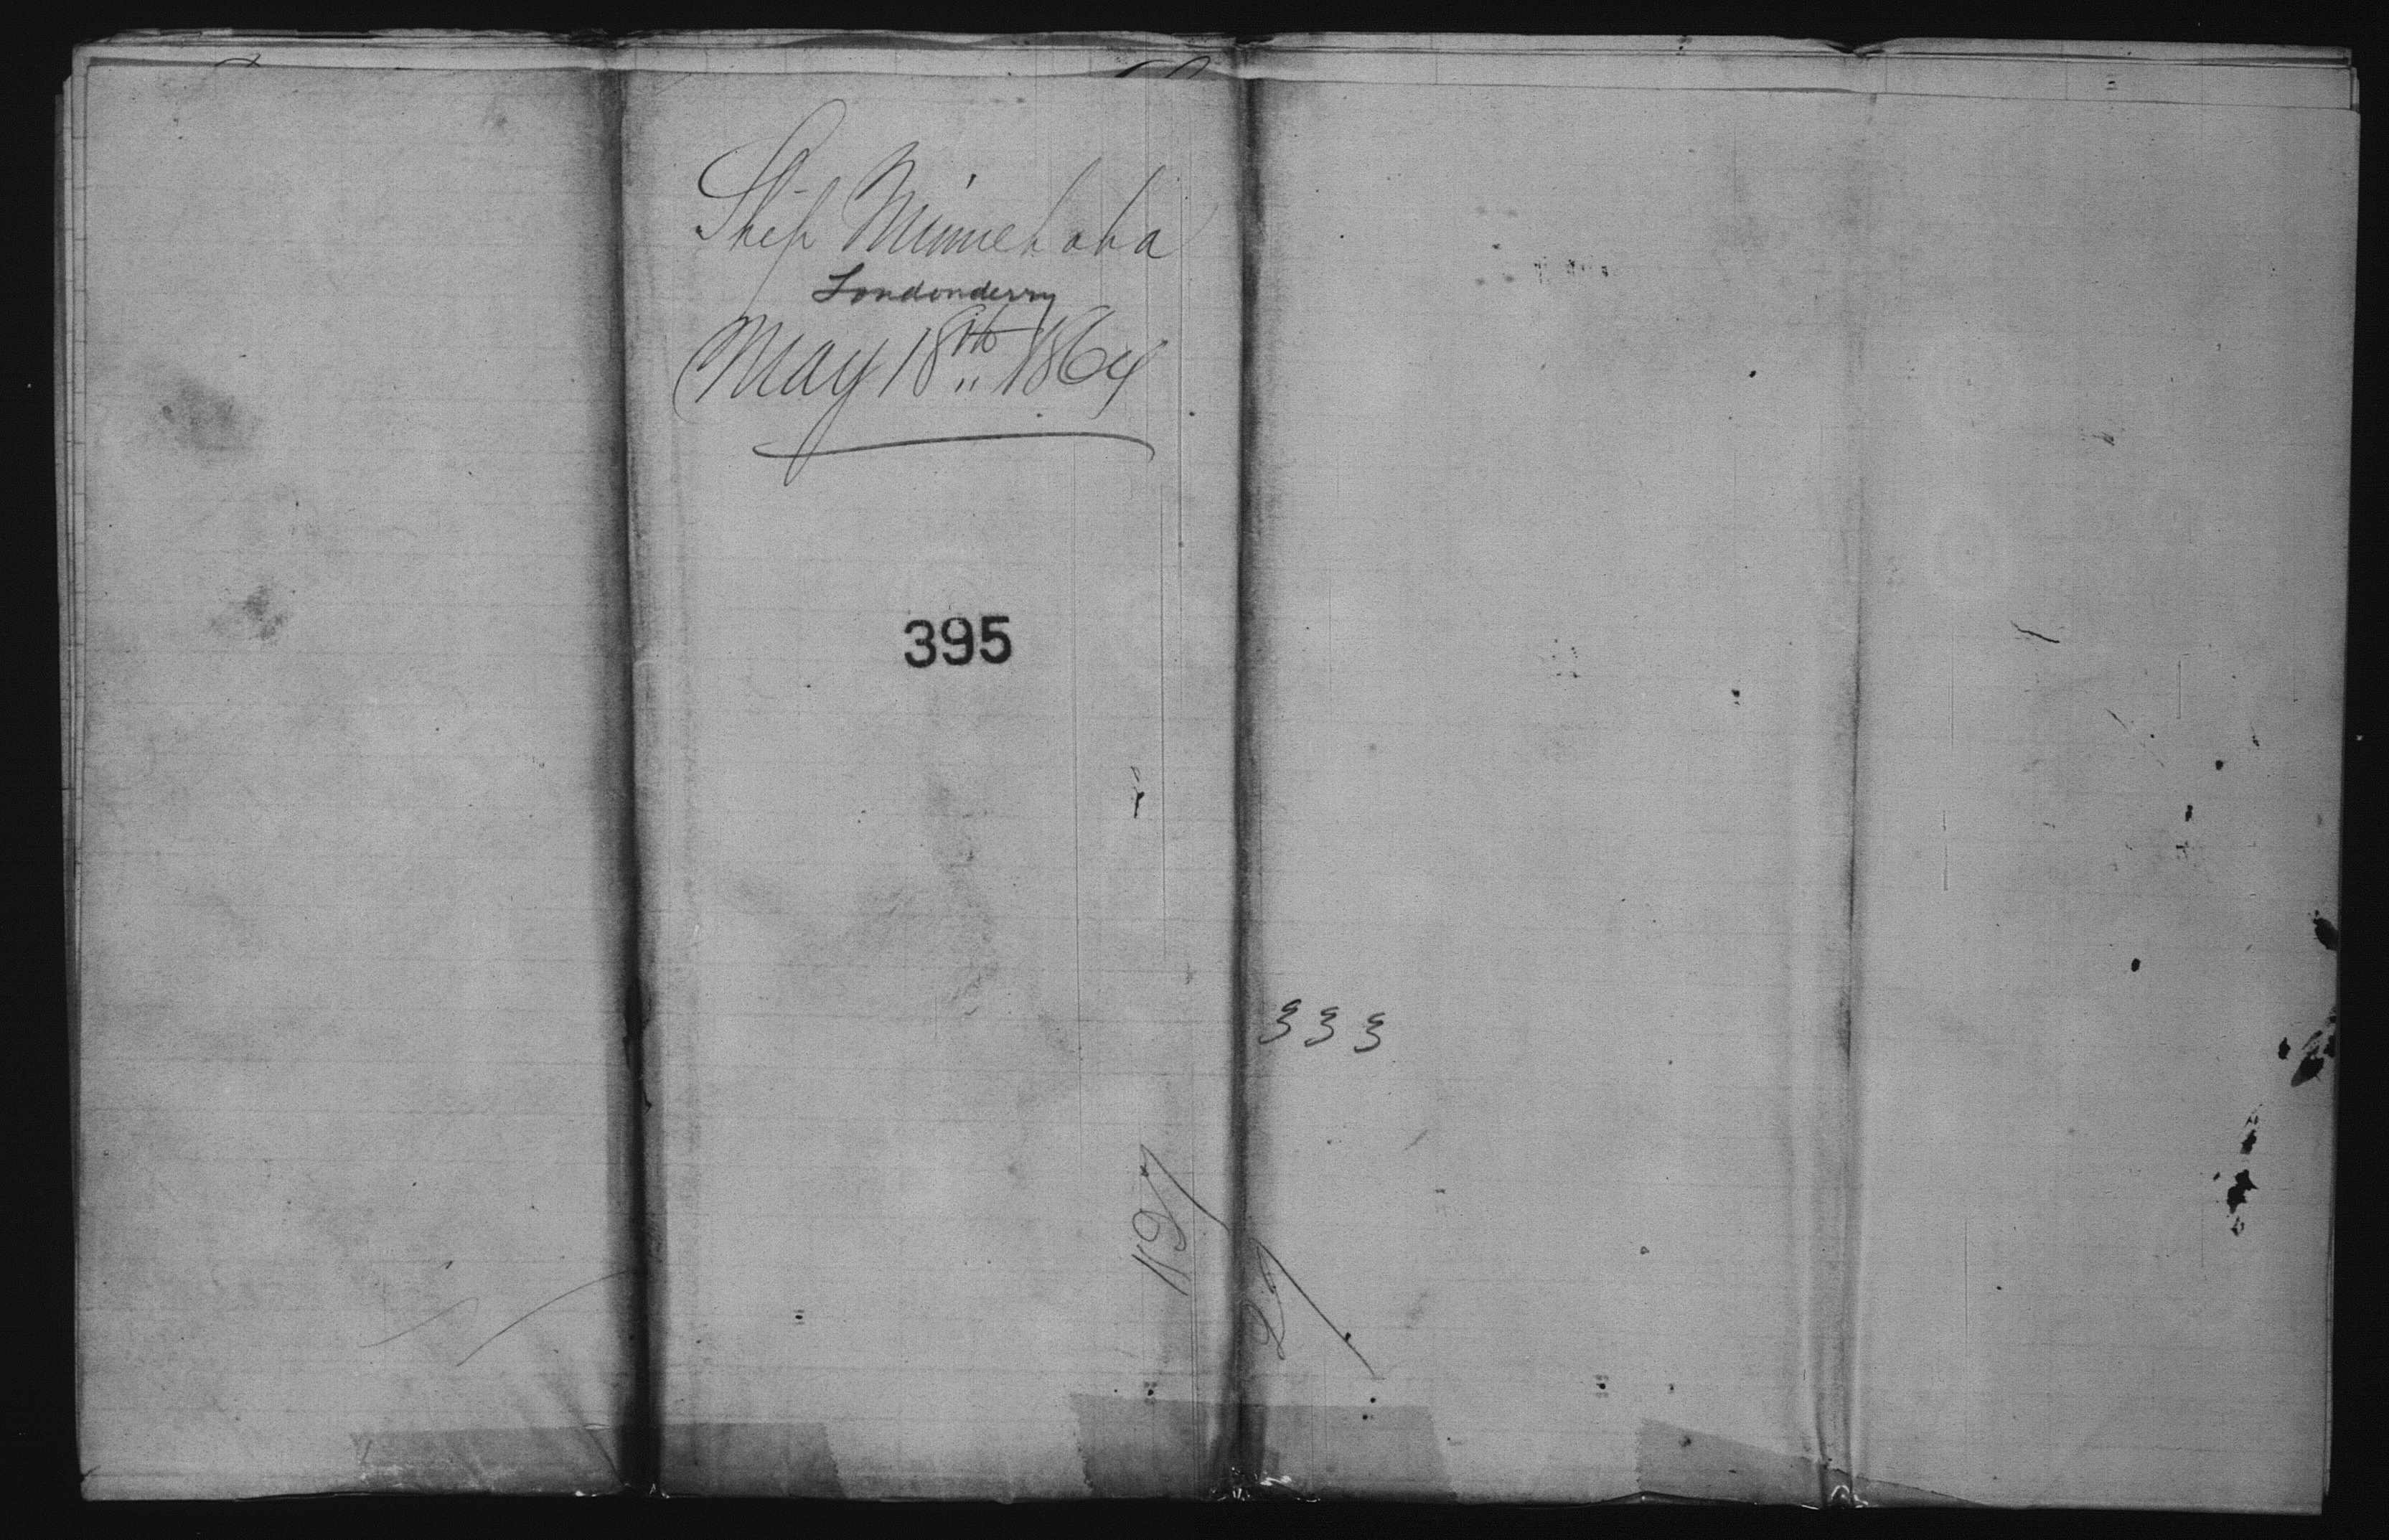 Ship Minnehaha
Londonderry
May 18th 1864
395
333
27